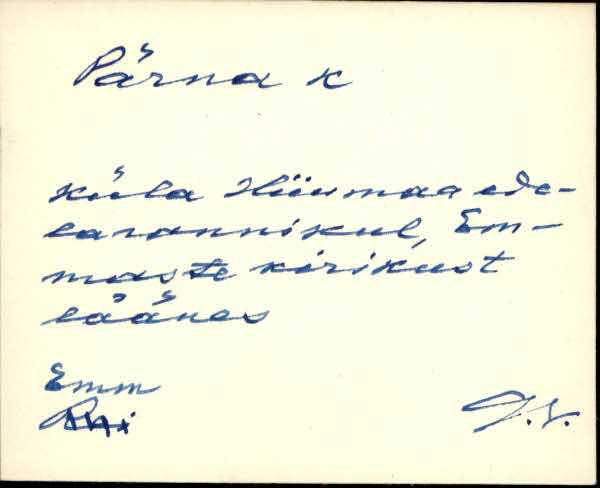 Pärna k
küla Hiiumaa ede-
larannikul, Em-
maste kirikust
läänes
Emm